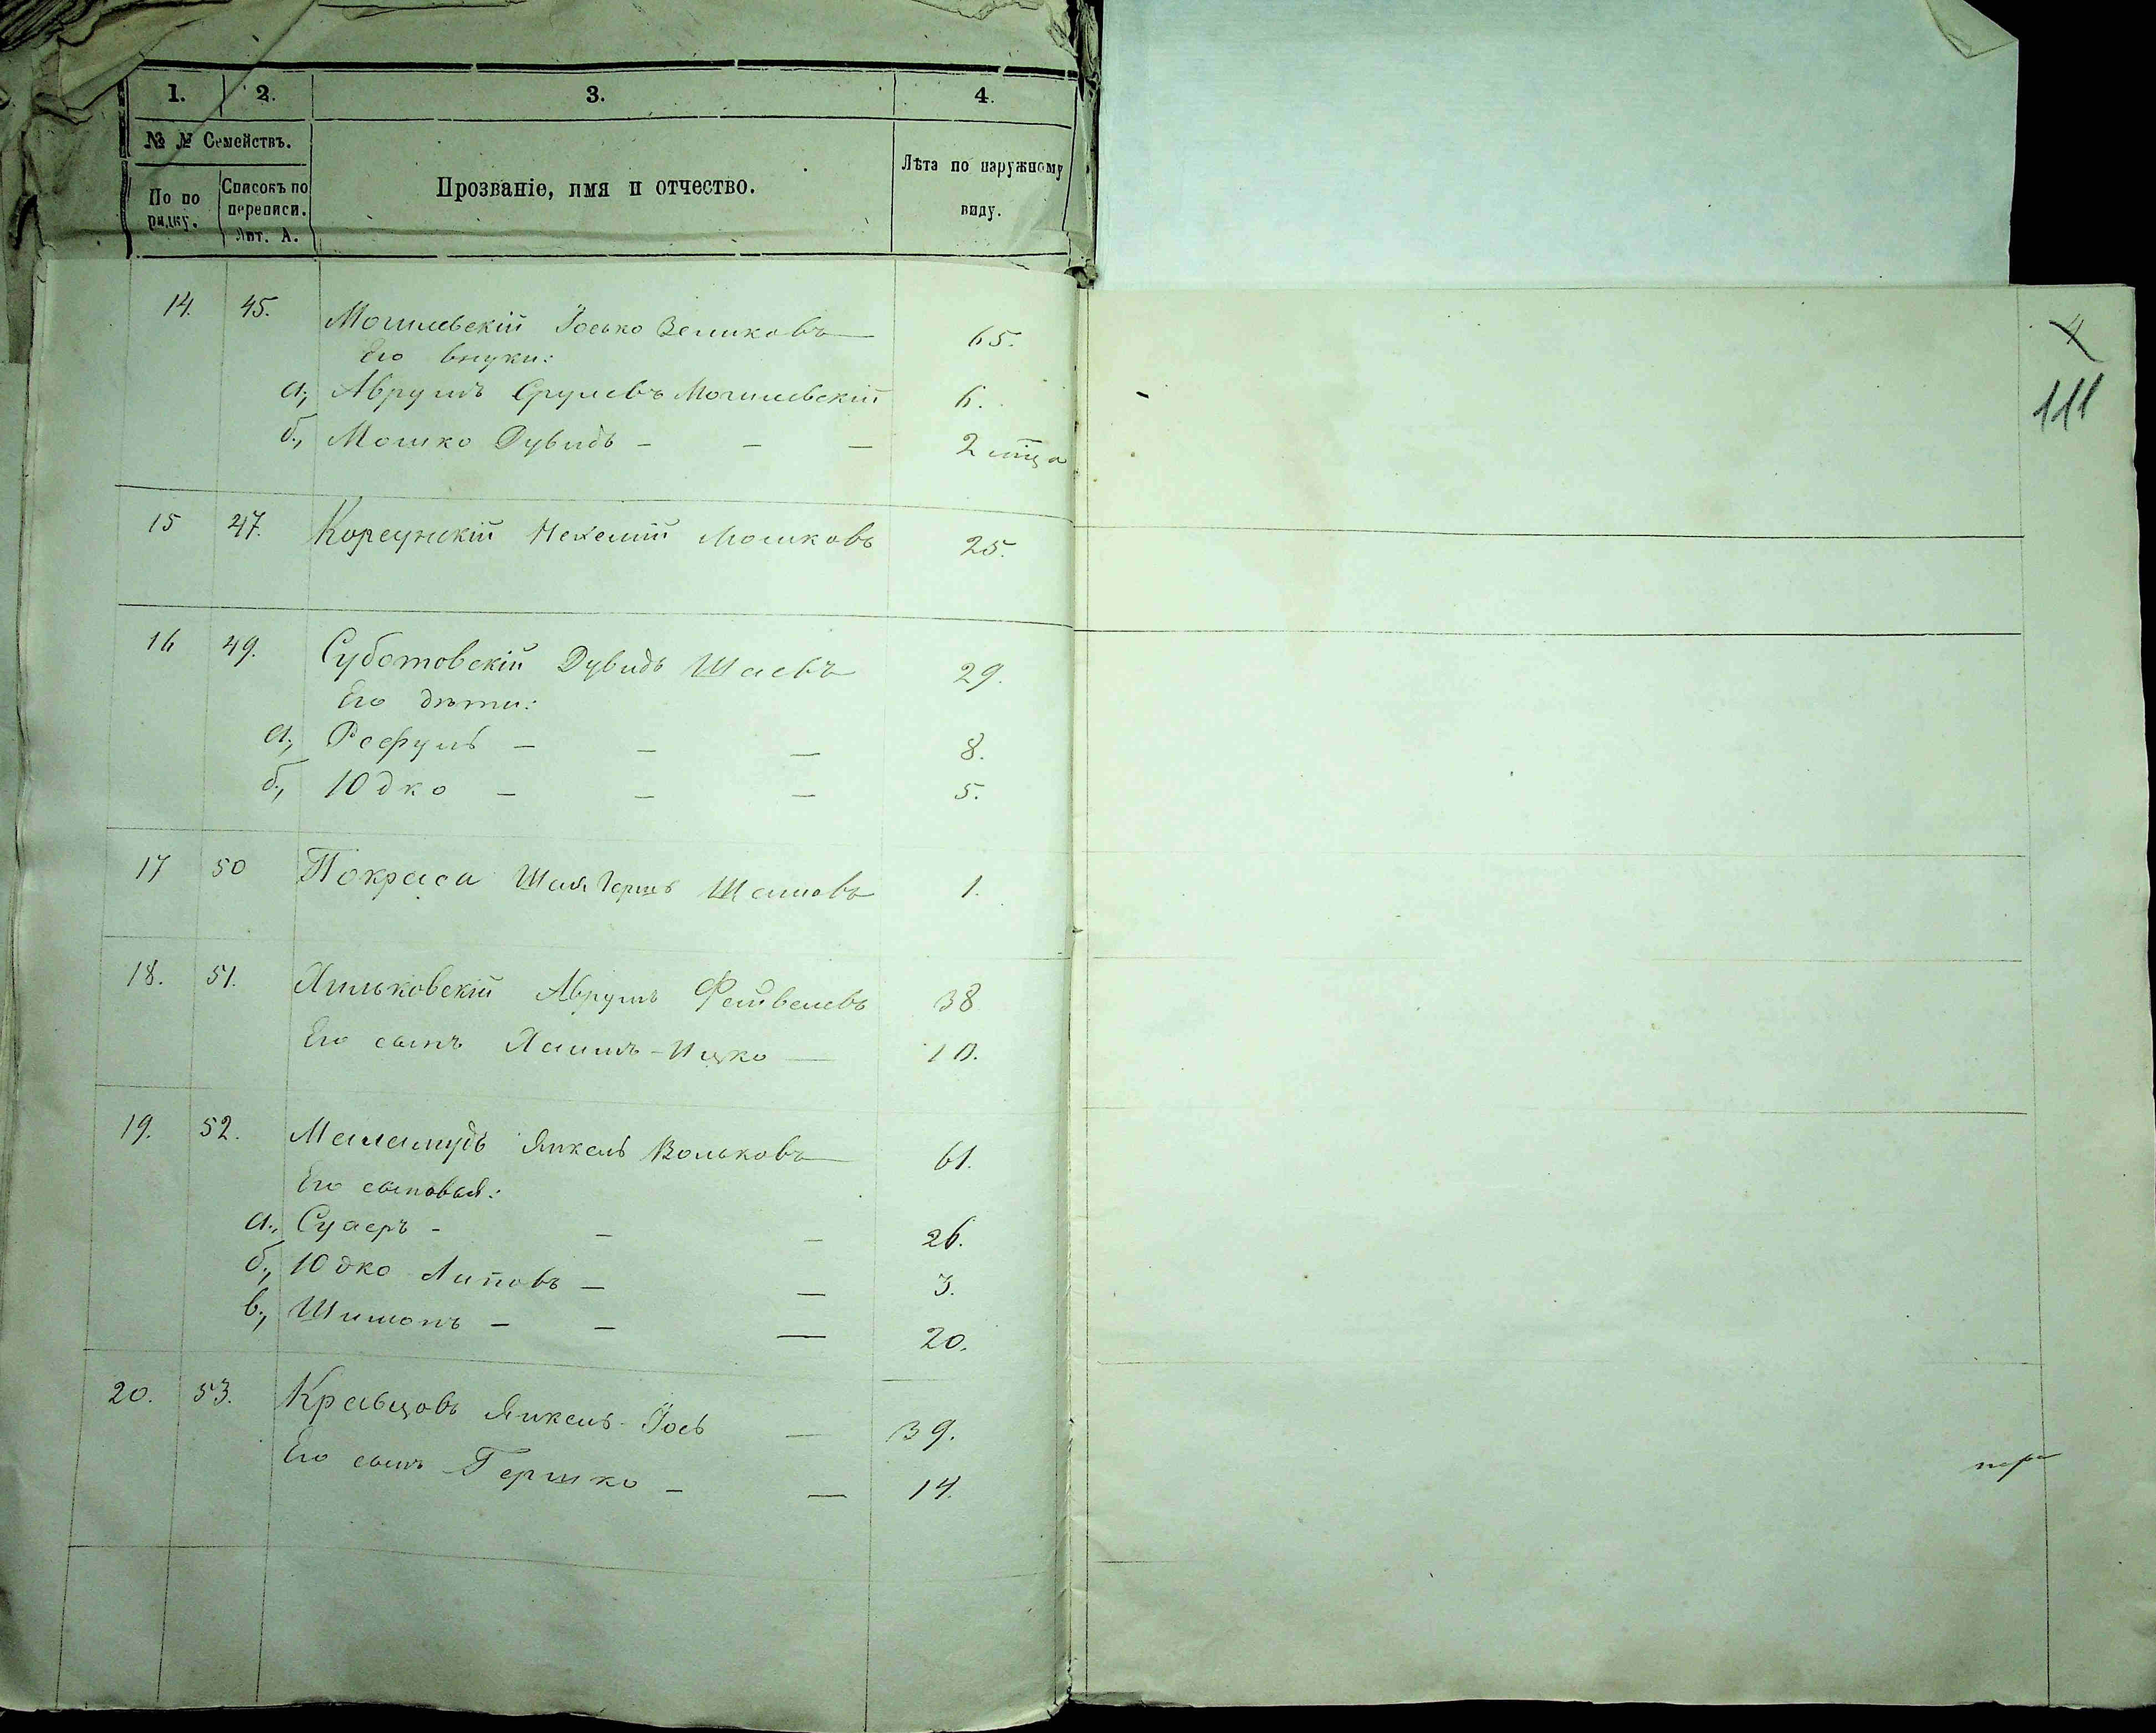 1. 2. 3. 4.
№ № Семействъ. Прозваніе, имя и отчество. Лѣта по наружному виду.
По порядку. Списокъ по переписи. Лит. А.
4
111
14. 45. Могилевскій Іосько Зеликовъ 65.
Его внуки:
а., Аврумъ Срулевъ Могилевскій 6.
б., Мошко Дувидъ - - - 2 м҃ца
15 47. Корсунскій Нехемій Мошковъ 25.
16 49. Суботовскій Дувидъ Шаевъ 29.
Его дѣти:
а., Рефулъ - - - 8.
б., Юдко - - - 5.
17 50 Покраса Шая Гершъ Шаиовъ 1.
18. 51. Авrумъ Фейвелевъ 38
Его сынъ - Ицко - 10.
19. 52. Меламудъ Янкель Вольковъ 61.
Его сыновья:
а., Суаеръ - - - 26.
б., Юдко Липовъ - - 3.
в., Шимонъ - - - 20.
20. 53. Кравцовъ Янкель-Іось - 39.
Его сынъ Гершко - - 14.